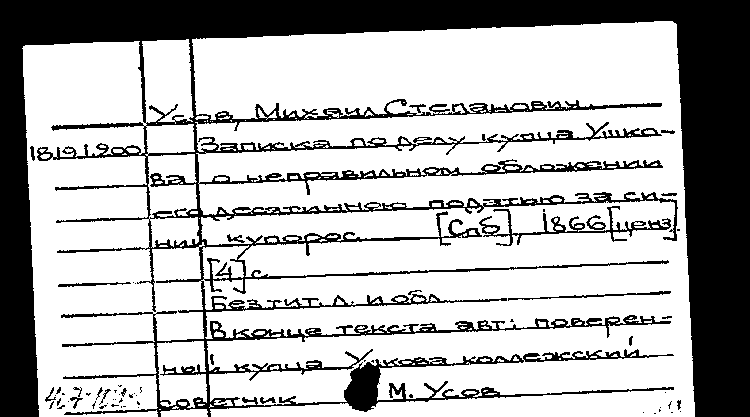 Усов, Михаил Степанович.
18.191.900 Записка по делу купца Ушко-
ва о неправильном обложении
его десятинною податью за си-
ний купорос. [Спб], 1866 [ценз].
[4] с.
Без тит. л. и обл.
В конце текста авт: поверен-
ный купца Ушкова коллежский
советник М. Усов